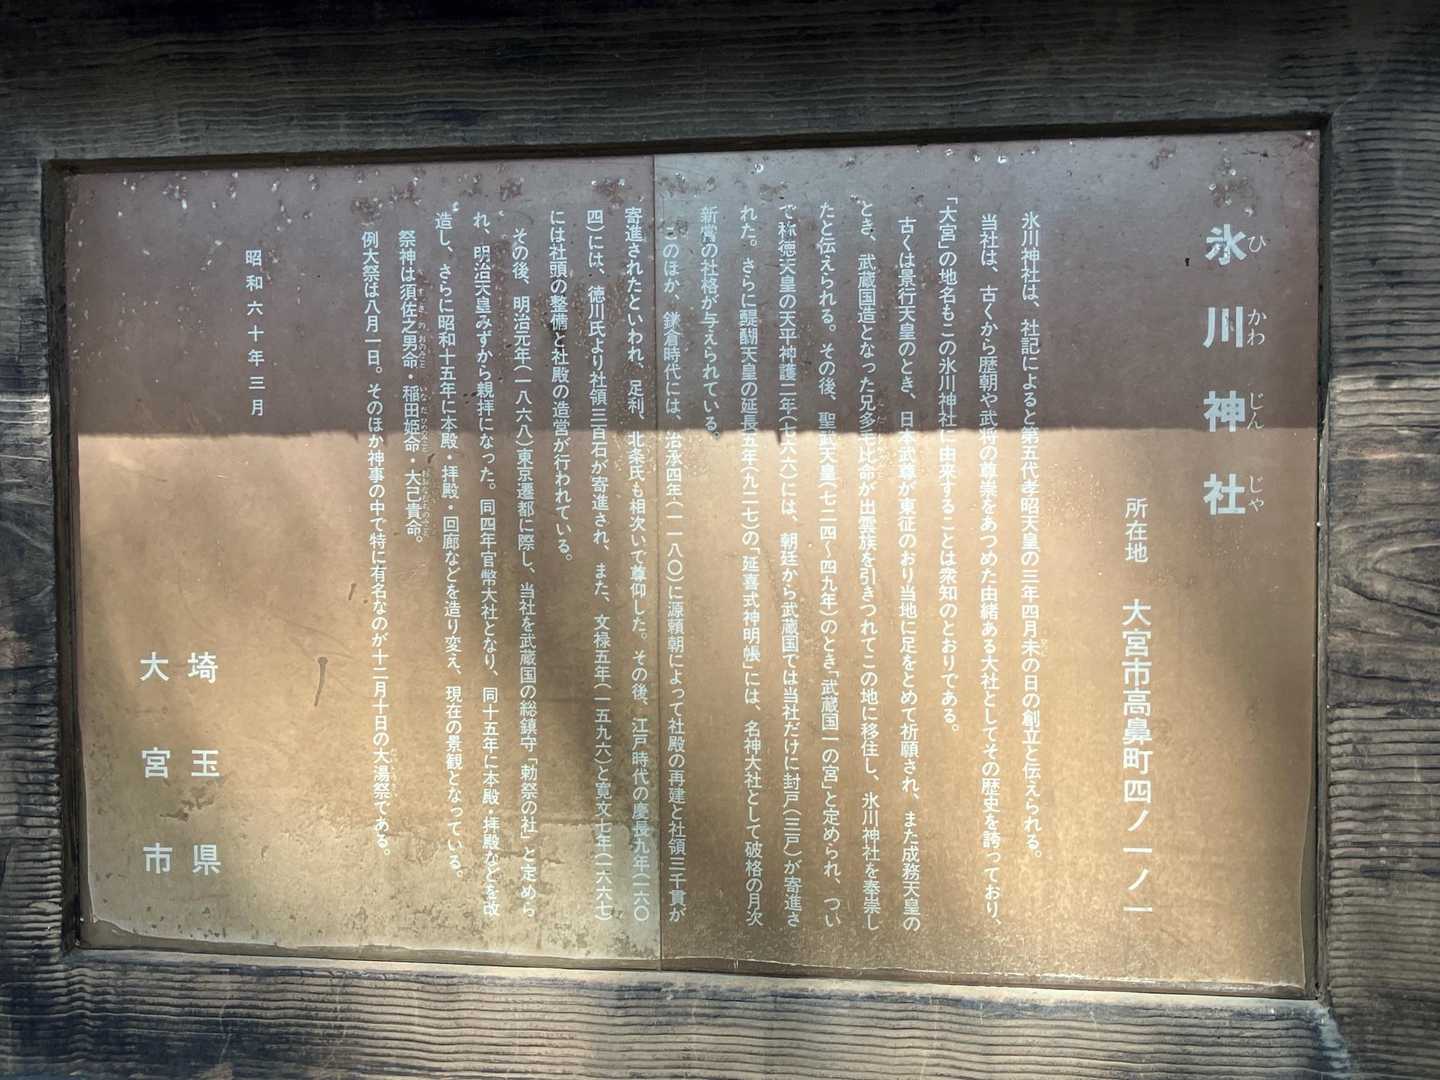 氷川神社
ひかわじんじゃ
所在地 大宮市高鼻町四ノ一ノ一
氷川神社は、社記によると第五代孝昭天皇の三年四月未の日の創立と伝えられる。
当社は、古くから歴朝や武将の尊崇をあつめた由緒ある大社としてその歴史を誇っており、
「大宮」の地名もこの氷川神社に由来することは衆知のとおりである。
古くは景行天皇のとき、日本武尊が東征のおり当地に足をとめて祈願され、また成務天皇の
とき、武蔵国造となった兄多毛比命が出雲族を引きつれてこの地に移住し、氷川神社を奉崇し
たと伝えられる。その後、聖武天皇(七二四〜四九年)のとき「武蔵国一の宮」と定められ、つい
で称徳天皇の天平神護二年(七六六)には、朝廷から武蔵国では当社だけに封戸(三戸)が寄進さ
れた。さらに醍醐天皇の延長五年(九二七)の「延喜式神明帳」には、名神大社として破格の月次
新嘗の社格が与えられている。
このほか、鎌倉時代には、治承四年(一一八〇)に源頼朝によって社殿の再建と社領三千貫が
寄進されたといわれ、足利、北条氏も相次いで尊仰した。その後、江戸時代の慶長九年(一六〇
四)には、徳川氏より社領三百石が寄進され、また、文禄五年(一五九六)と寛文七年(一六六七)
には社頭の整備と社殿の造営が行われている。
その後、明治元年(一八六八)東京遷都に際し、当社を武蔵国の総鎮守「勅祭の社」と定めら
れ、明治天皇みずから親拝になった。同四年官幣大社となり、同十五年に本殿・拝殿などを改
造し、さらに昭和十五年に本殿・拝殿・回廊などを造り変え、現在の景観となっている。
祭神は須佐之男命・稲田姫命・大己貴命。
例大祭は八月一日。そのほか神事の中で特に有名なのが十二月十日の大湯祭である。
昭和六十年三月
埼玉県
大宮市